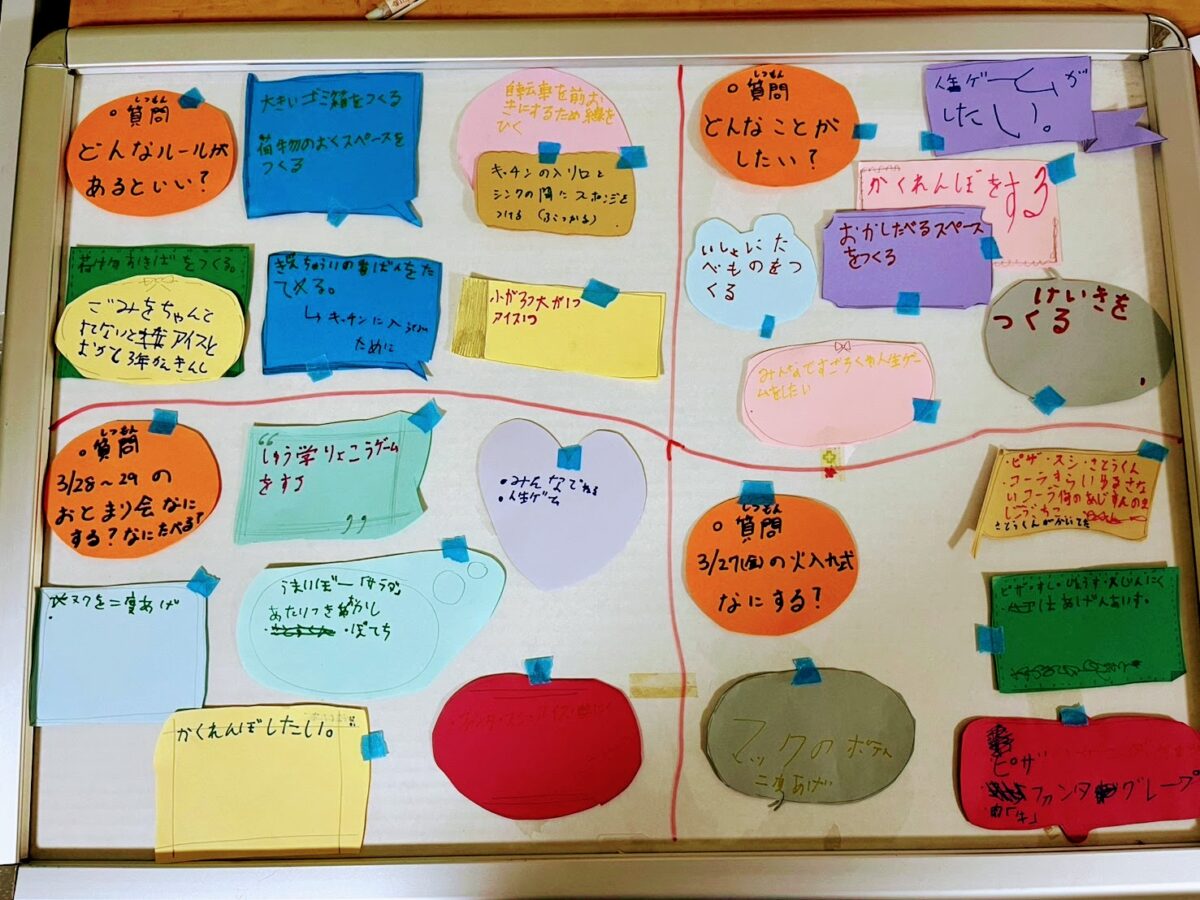 しつもん
質問
どんなルールが
あるといい?
大きいゴミ箱をつくる
荷物のおくスペースを
つくる
自転車を前お
きにするため線を
ひく
キッチンの入り口と
シンクの間にスポンジを
つける(ぶつかる)
荷物おきばをつくる。
ごみをちゃんと
すてないと アイスと
おかし3年かんきんし
をた
てめる。
↳キッチンに入
ために
小が3つ大が1つ
アイス1つ
しつもん
質問
どんなことが
したい?
人生ゲームが
したい。
かくれんぼをする
いしょにた
べものをつ
くる
おかしたべるスペース
をつくる
けいきを
つくる
みんなですごろくか人生ゲー
ムをしたい
しつもん
質問
3/28~29の
おとまり会なに
する?なにたべる?
しゅう学りょこうゲーム
をする
・みんなでねる
・人生ゲーム
を二度あげ
うまいぼー「サラダ」
あたりつきおかし
・ぽてち
かくれんぼしたい。
しつもん
質問
3/27(金)の火入れ式
なにする?
・ピザ・スシ・さとうくん
・コーラ
さとうくんがかいてる
マックのポテト
二度あげ
ピザ
ファンタ グレープ